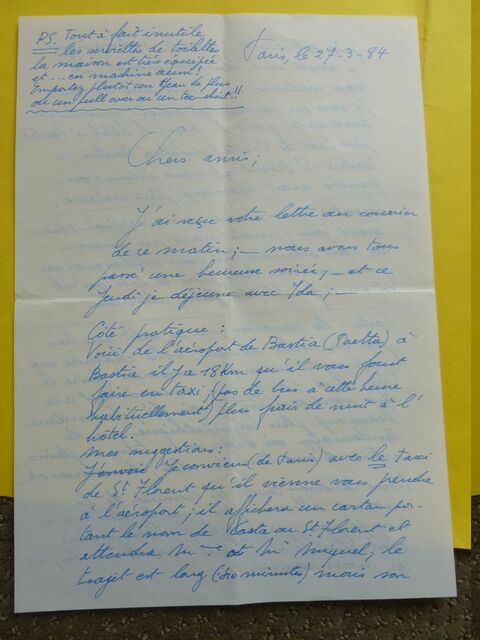 PS. Tout à fait inutile
les serviettes de toilettes
la maison est très équipée
et... en machine aussi!
Emportez plutôt un Jean de plus
ou un pull over ou un tee shirt!!
Paris, le 27-3-84
Chers amis,
J'ai reçu votre lettre au courrier
de ce matin; - nous avons tous
passé une heureuse soirée; - et ce
Jeudi je déjeune avec Ida; -
Côté pratique:
Voici de l'aéroport de Bastia (Poretta) à
Bastia il y a 18 Km qu'il vous faut
faire en taxi, (pas de bus à cette heure
habituellement) plus frais de nuit à l'
hôtel.
mes suggestions:
J'envoie Je conviens (de Paris) avec le taxi
de St Florent qu'il vienne vous prendre
à l'aéroport; il affichera un carton por-
tant le nom de Casta ou St Florent et
attendra Mme et Mr Miguel; le
trajet est long (40 minutes) mais son